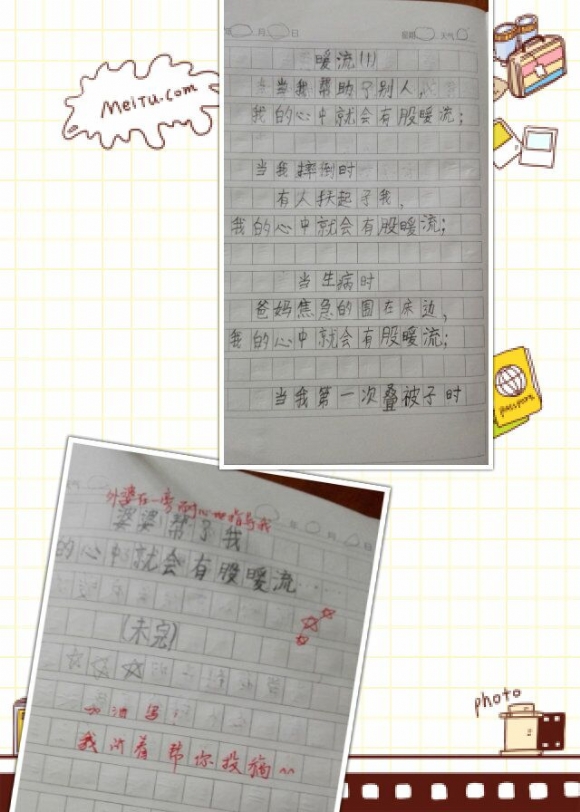 MeiTu.com
年 月 日 星期 天气
暖流(1)
当我帮助了别人,
我的心中就会有股暖流;
当我摔倒时
有人扶起了我,
我的心中就会有股暖流;
当生病时
爸妈焦急的围在床边,
我的心中就会有股暖流;
当我第一次叠被子时
passport
外婆在一旁耐心地指导我
婆婆帮了我
的心中就会有股暖流
(未完)
加油写!
我问着帮你投稿~
photo